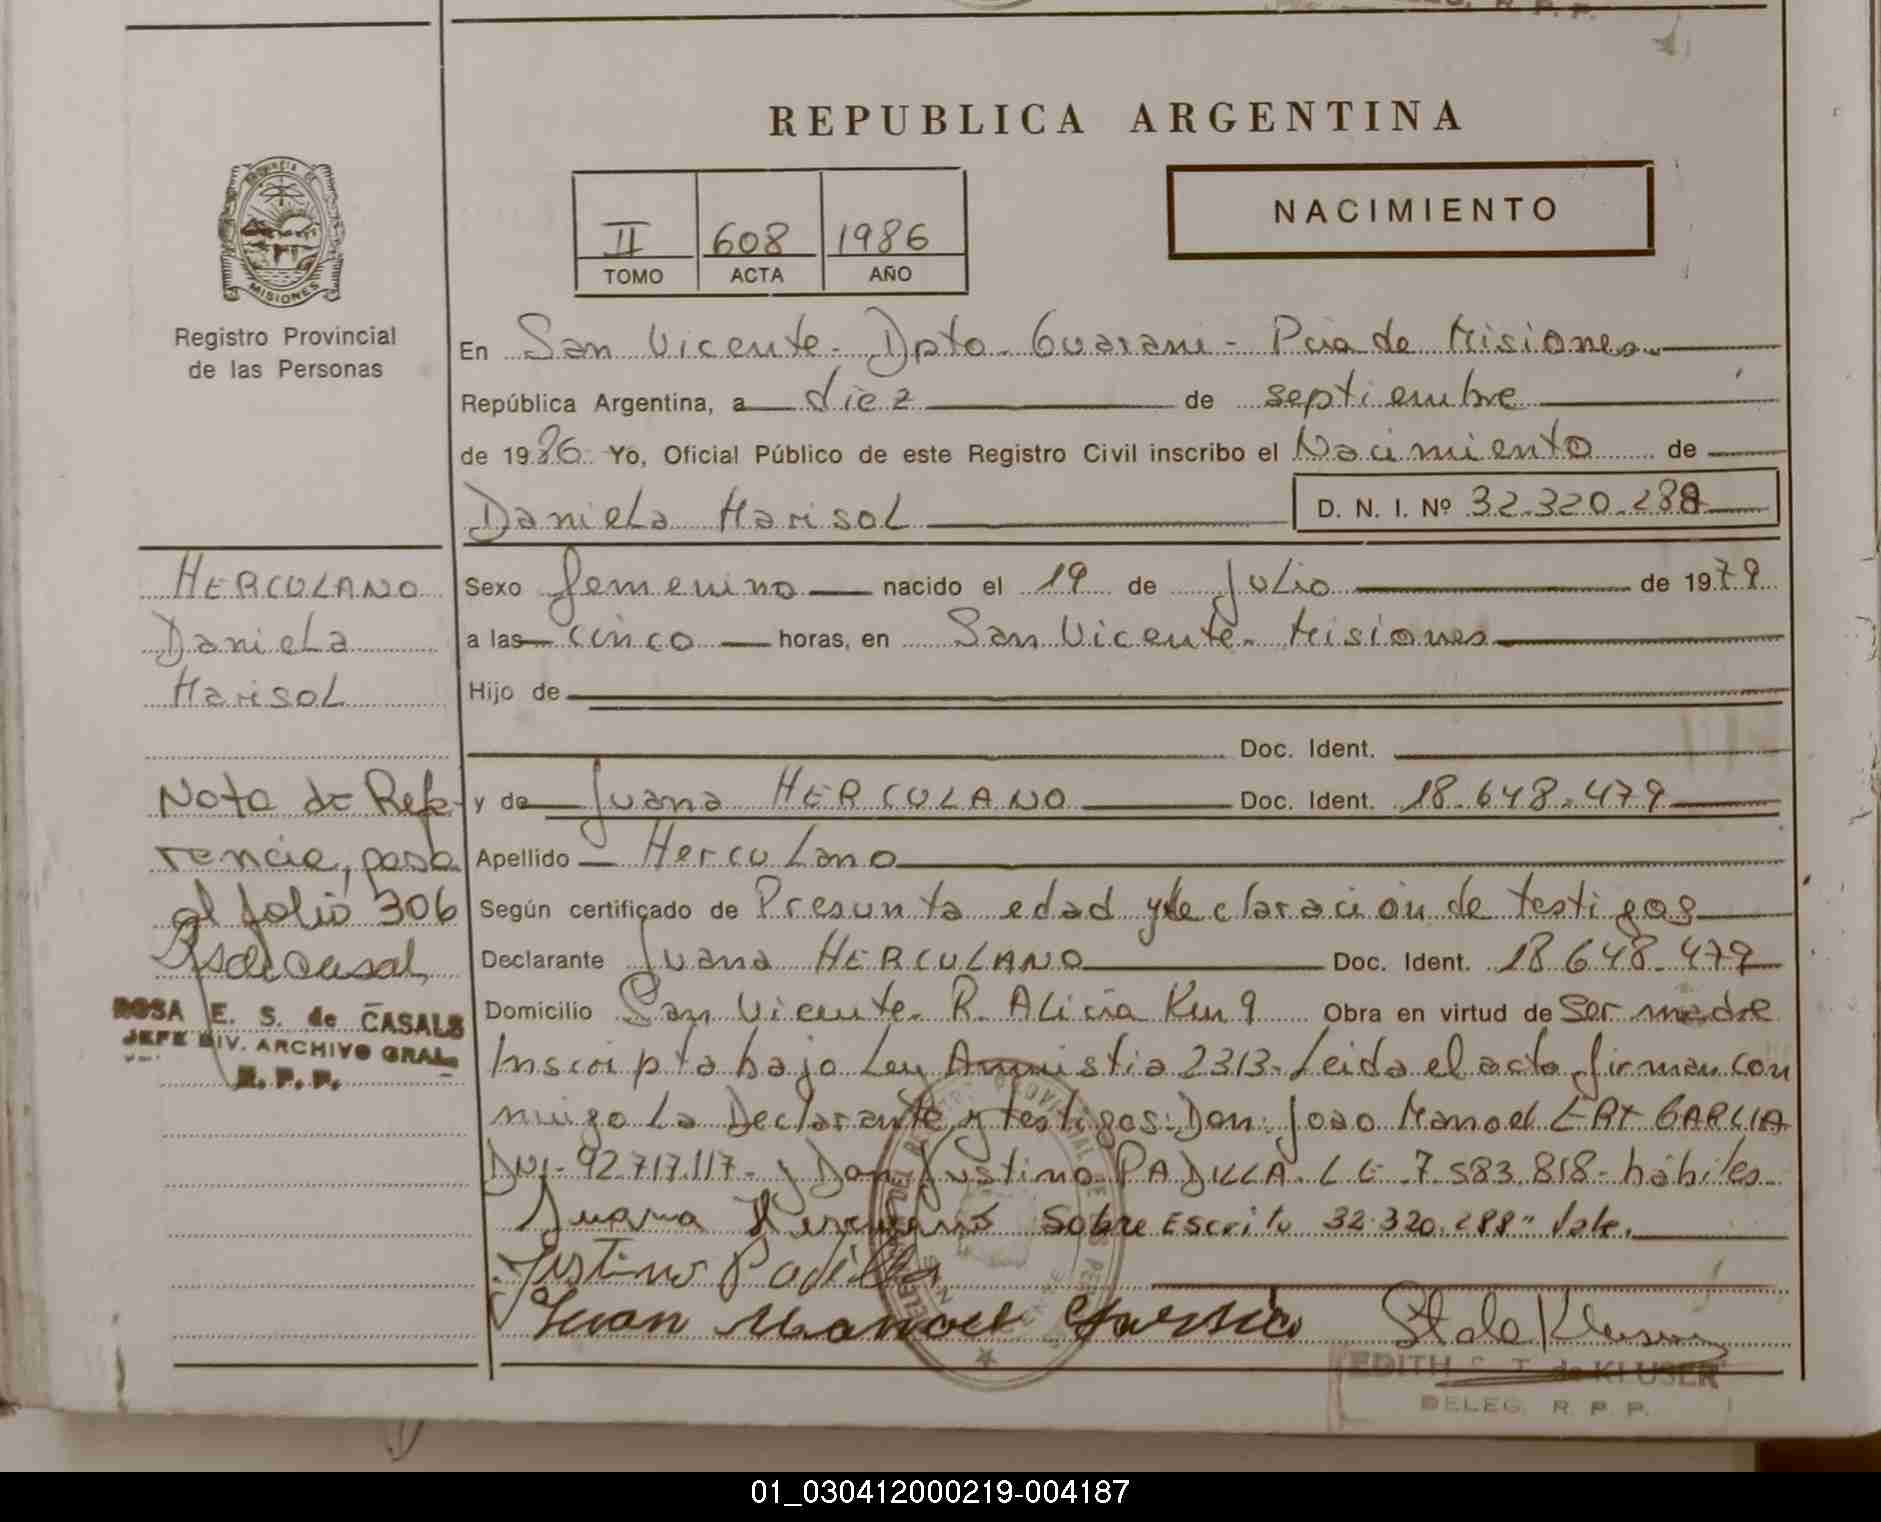 REPUBLICA ARGENTINA
PROVINCIA DE
MISIONES
Registro Provincial
de las Personas
II 608 1986
TOMO ACTA AÑO
NACIMIENTO
En San Vicente - Dpto - Guarani - Pcia de Misiones
República Argentina, a diez de septiembre
de 1986 Yo, Oficial Público de este Registro Civil inscribo el Nacimiento de
Daniela Marisol D. N. I. Nº 32.320.288
HERCOLANO
Daniela
Marisol
Sexo femenino nacido el 19 de Julio de 1979
a las cinco horas, en San Vicente - Misiones
Hijo de
Doc. Ident.
y de Juana HERCOLANO Doc. Ident. 18.648.479
Apellido Hercolano
Según certificado de Presunta edad y declaración de testigos
Declarante Juana HERCULANO Doc. Ident. 18.648.479
Domicilio San Vicente - R. Alicia Km 9 Obra en virtud de Ser madre
Inscripta bajo Ley Amnistia 2313 - Leida el acta firman con
migo La Declarante y testigos: Don: Joao Manoel GARCIA
DNI - 92.717.117 - y Don Justino PADILLA - L E - 7.583.818 - hábiles
Juana Herculano Sobre Escrito "32.320.288" Vale.
Justino Padilla
Juan Manoel Garcia
Nota de Refe-
rencia, pasa
al folio 306
ROSA E. S. de CASALS
JEFE DIV. ARCHIVO GRAL
R. P. P.
EDITH S. T. de KLUSER
DELEG. R. P. P.
01_030412000219-004187